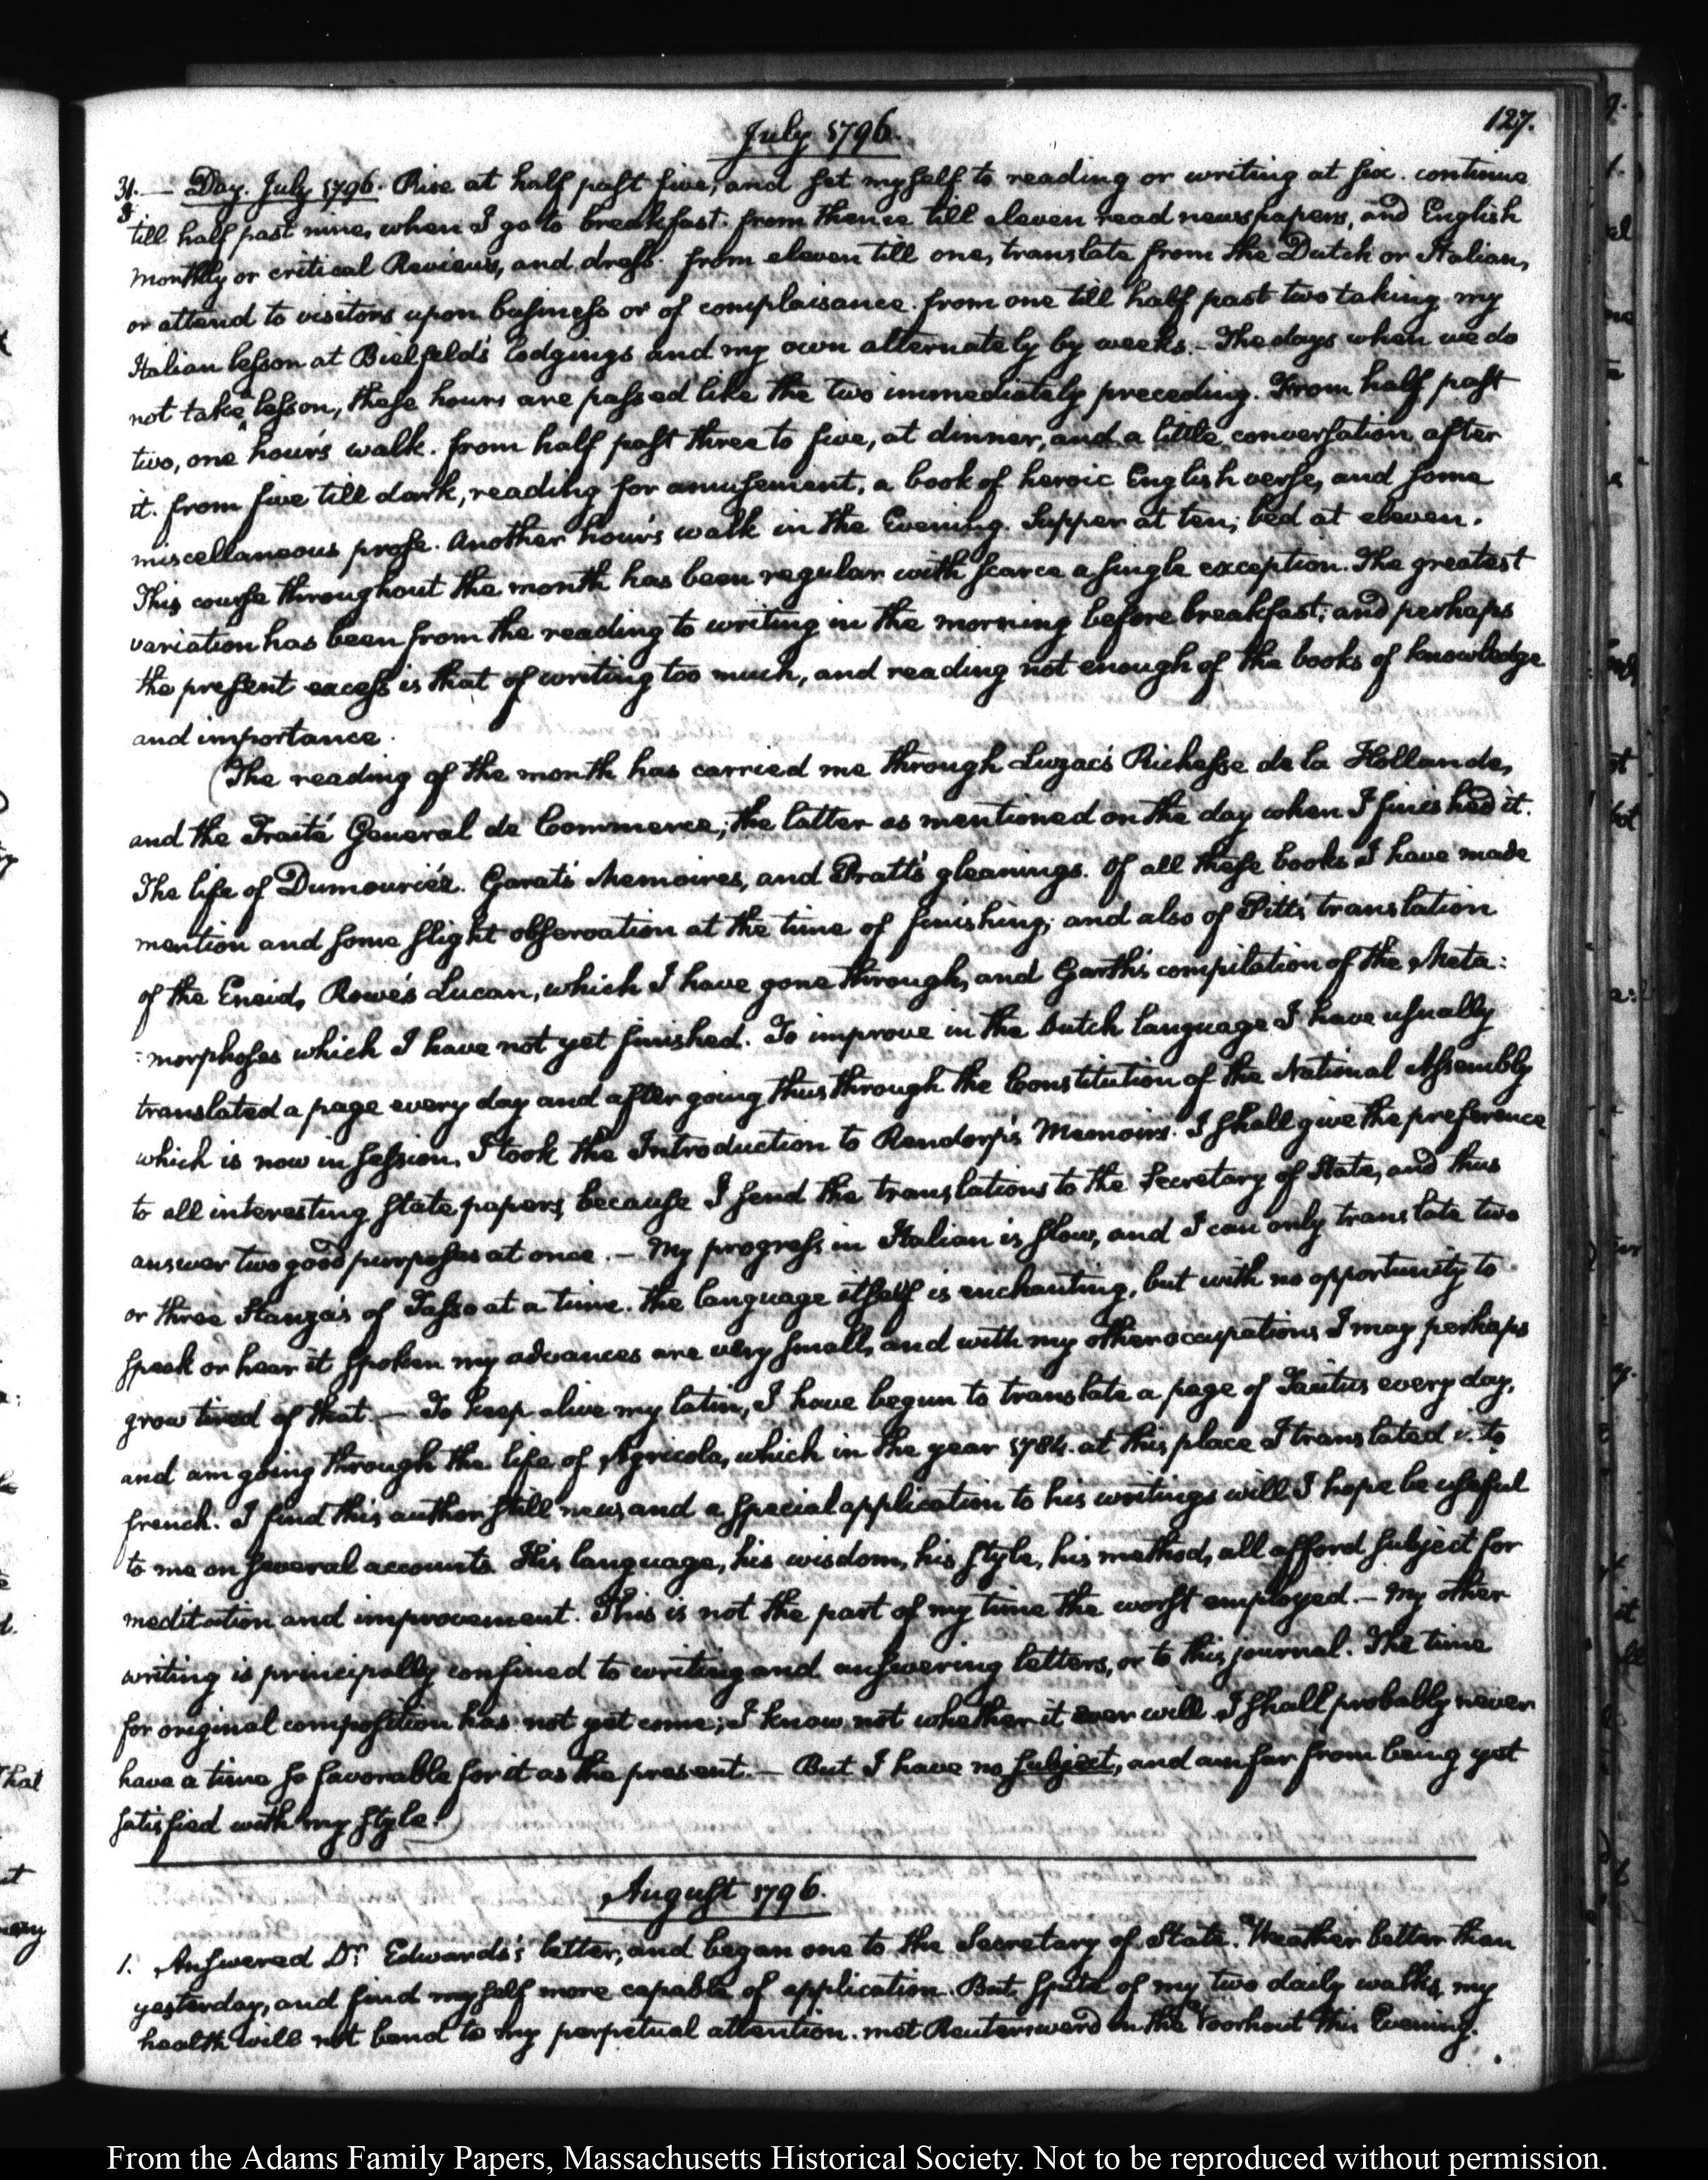 127.
July 1796.
31. — Day. July 1796. Rise at half past five, and set myself to reading or writing at six. continue
till half past nine, when I go to breakfast. from thence till eleven read newspapers, and English
monthly or critical Reviews, and dress. from eleven till one, translate from the Dutch or Italian,
or attend to visitors upon business or of complaisance. from one till half past two taking my
Italian lesson at Bielfeld's lodgings and my own alternately by weeks. — The days when we do
not take a lesson, these hours are passed like the two immediately preceding. From half past
two, one hour's walk. from half past three to five, at dinner, and a little conversation after
it. from five till dark, reading for amusement, a book of heroic English verse, and some
miscellaneous prose. Another hour's walk in the Evening. Supper at ten; bed at eleven.
This course throughout the month has been regular with scarce a single exception. The greatest
variation has been from the reading to writing in the morning before breakfast; and perhaps
the present excess is that of writing too much, and reading not enough of the books of knowledge
and importance.
(The reading of the month has carried me through Luzac's Richesse de la Hollande,
and the Traité General de Commerce; the latter as mentioned on the day when I finished it.
The life of Dumouriéz. Garat's Memoires, and Pratt's gleanings. Of all these books I have made
mention and some slight observation at the time of finishing; and also of Pitt's translation
of the Eneid, Rowe's Lucan, which I have gone through, and Garth's compilation of the Meta:
:morphoses which I have not yet finished. To improve in the Dutch language I have usually
translated a page every day and after going thus through the Constitution of the National Assembly
which is now in session, I took the Introduction to Rendorp's Memoirs. I shall give the preference
to all interesting state papers, because I send the translations to the Secretary of State, and thus
answer two good purposes at once. — My progress in Italian is slow, and I can only translate two
or three Stanza's of Tasso at a time. The language itself is enchanting, but with no opportunity to
speak or hear it spoken my advances are very small, and with my other occupations I may perhaps
grow tired of that. — To keep alive my latin, I have begun to translate a page of Tacitus every day,
and am going through the life of Agricola, which in the year 1784. at this place I translated into
french. I find this author still new, and a special application to his writings will I hope be useful
to me on several accounts. His language, his wisdom, his style, his method, all afford subject for
meditation and improvement. This is not the part of my time the worst employed. — My other
writing is principally confined to writing and answering letters, or to this journal. The time
for original composition has not yet come; I know not whether it ever will. I shall probably never
have a time so favorable for it as the present. — But I have no subject, and am far from being yet
satisfied with my style.)
August 1796.
1. Answered Dr. Edwards's letter, and began one to the Secretary of State. Weather better than
yesterday, and find myself more capable of application. But spite of my two daily walks, my
health will not bend to my perpetual attention. met Reutersward in the Voorhout this Evening.
From the Adams Family Papers, Massachusetts Historical Society. Not to be reproduced without permission.